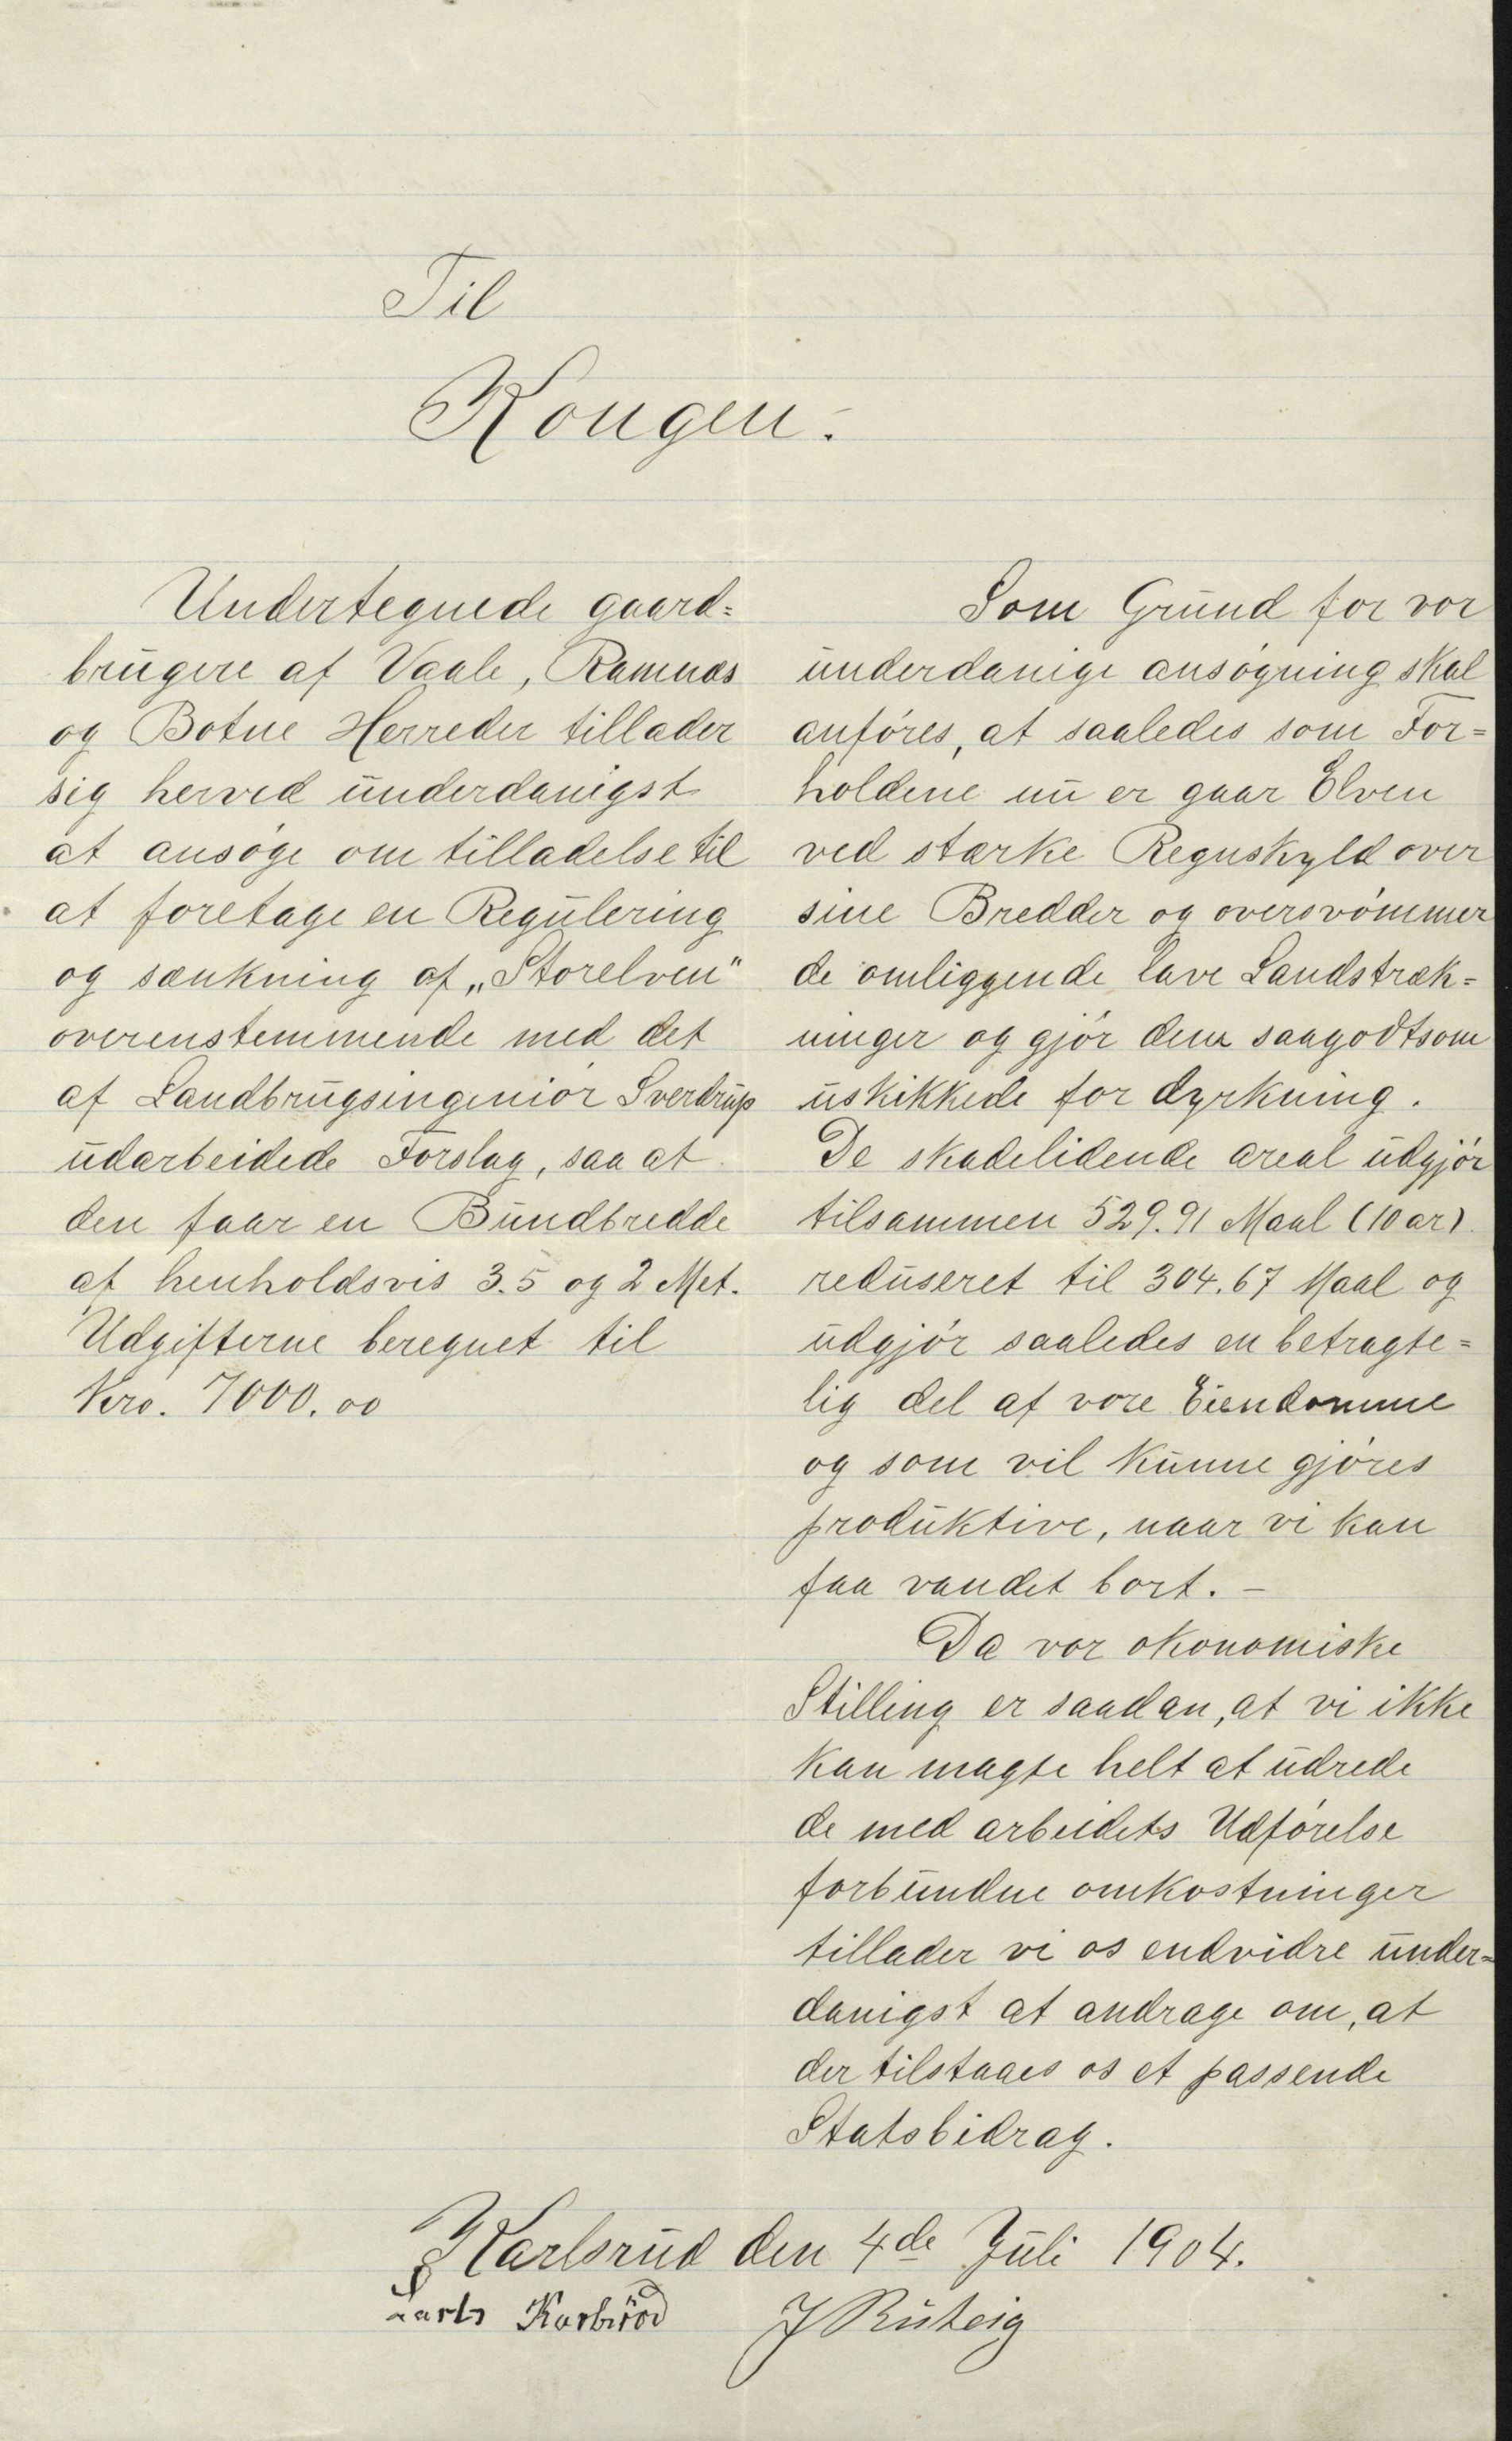 Til
Kongen.
Undertegnede gaard=
brugere af Vaale, Ramnæs
og Botne Herreder tillader
sig herved underdanigst
at ansøge om tilladelse til
at foretage en Regulering
og sænkning af „Storelven"
overenstemmende med det
af Landbrugsingeniør Sverdrup
udarbeidede Forslag, saa at
den faar en Bundbredde
af henholdsvis 3.5 og 2 Met.
Udgifterne beregnet til
Kro. 7000.00
Som Grund for vor
underdanige ansøgning skal
anføres, at saaledes som For=
holdene nu er gaar Elven
ved stærke Regnskyld over
sine Bredder og oversvømmer
de omliggende lave Landstræk=
ninger og gjør dem saagodtsom
uskikkede for dyrkning.
De skadelidende areal udgjør
tilsammen 529.91 Maal (10 ar)
reduseret til 304.67 Maal og
udgjør saaledes en betragte=
lig del af vore Eiendomme
og som vil kunne gjøres
produktive, naar vi kan
faa vandet bort. —
Da vor økonomiske
Stilling er saadan, at vi ikke
kan magte helt at udrede
de med arbeidets Udførelse
forbundne omkostninger
tillader vi os endvidre under=
danigst at andrage om, at
der tilstaaes os et passende
Statsbidrag.
Karlsrud den 4de Juli 1904.
J